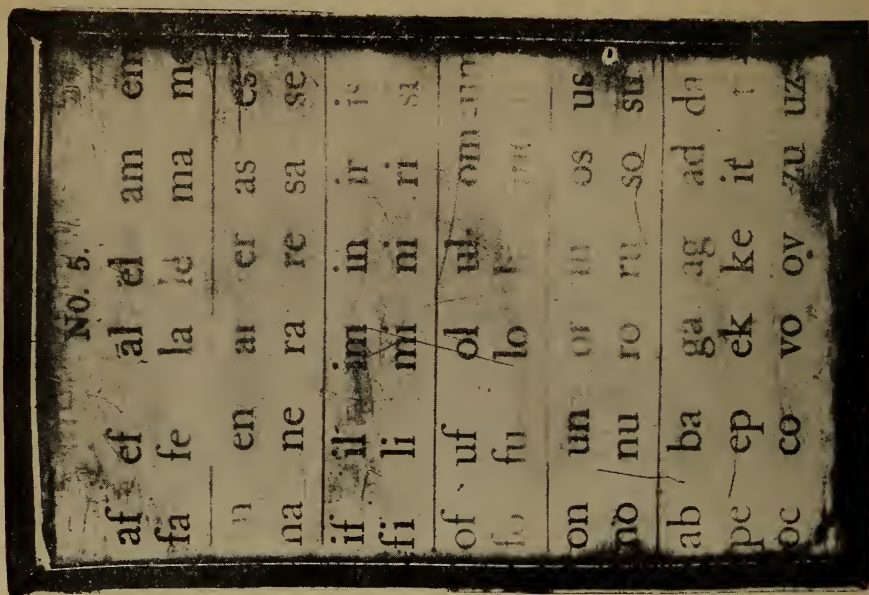 No. 5.
af ef al el am
fa fe la le ma
en ar er as es
na ne ra re sa se
if il im in ir is
fi li mi ni ri si
of uf ol ul om um
fo fu lo
on un or os us
no nu ro ru so su
ab ba ga ag ad da
pe ep ek ke it
oc co vo ov zu uz